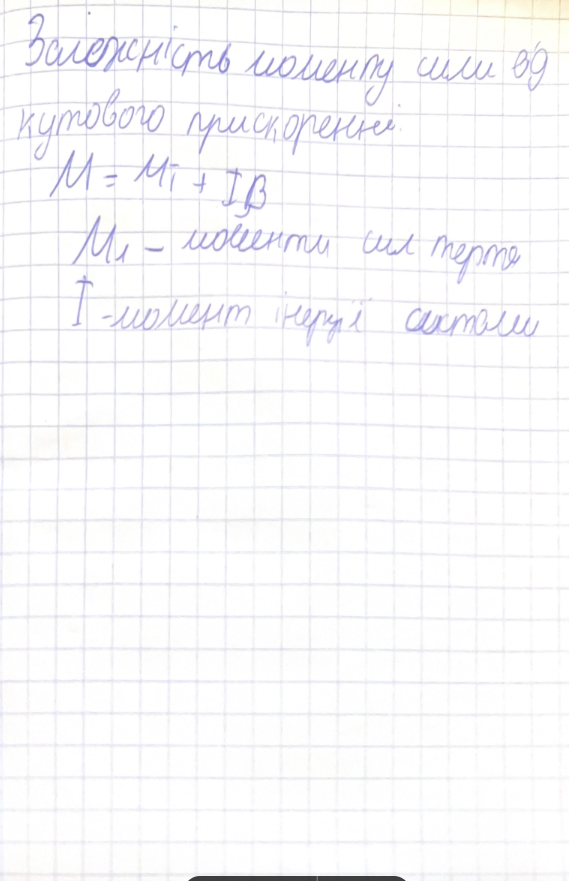 Залежність моменту сили від
кутового прискорення.
M = M₁ + Iβ
M₁ – моменти сил тертя
I - момент інерції системи